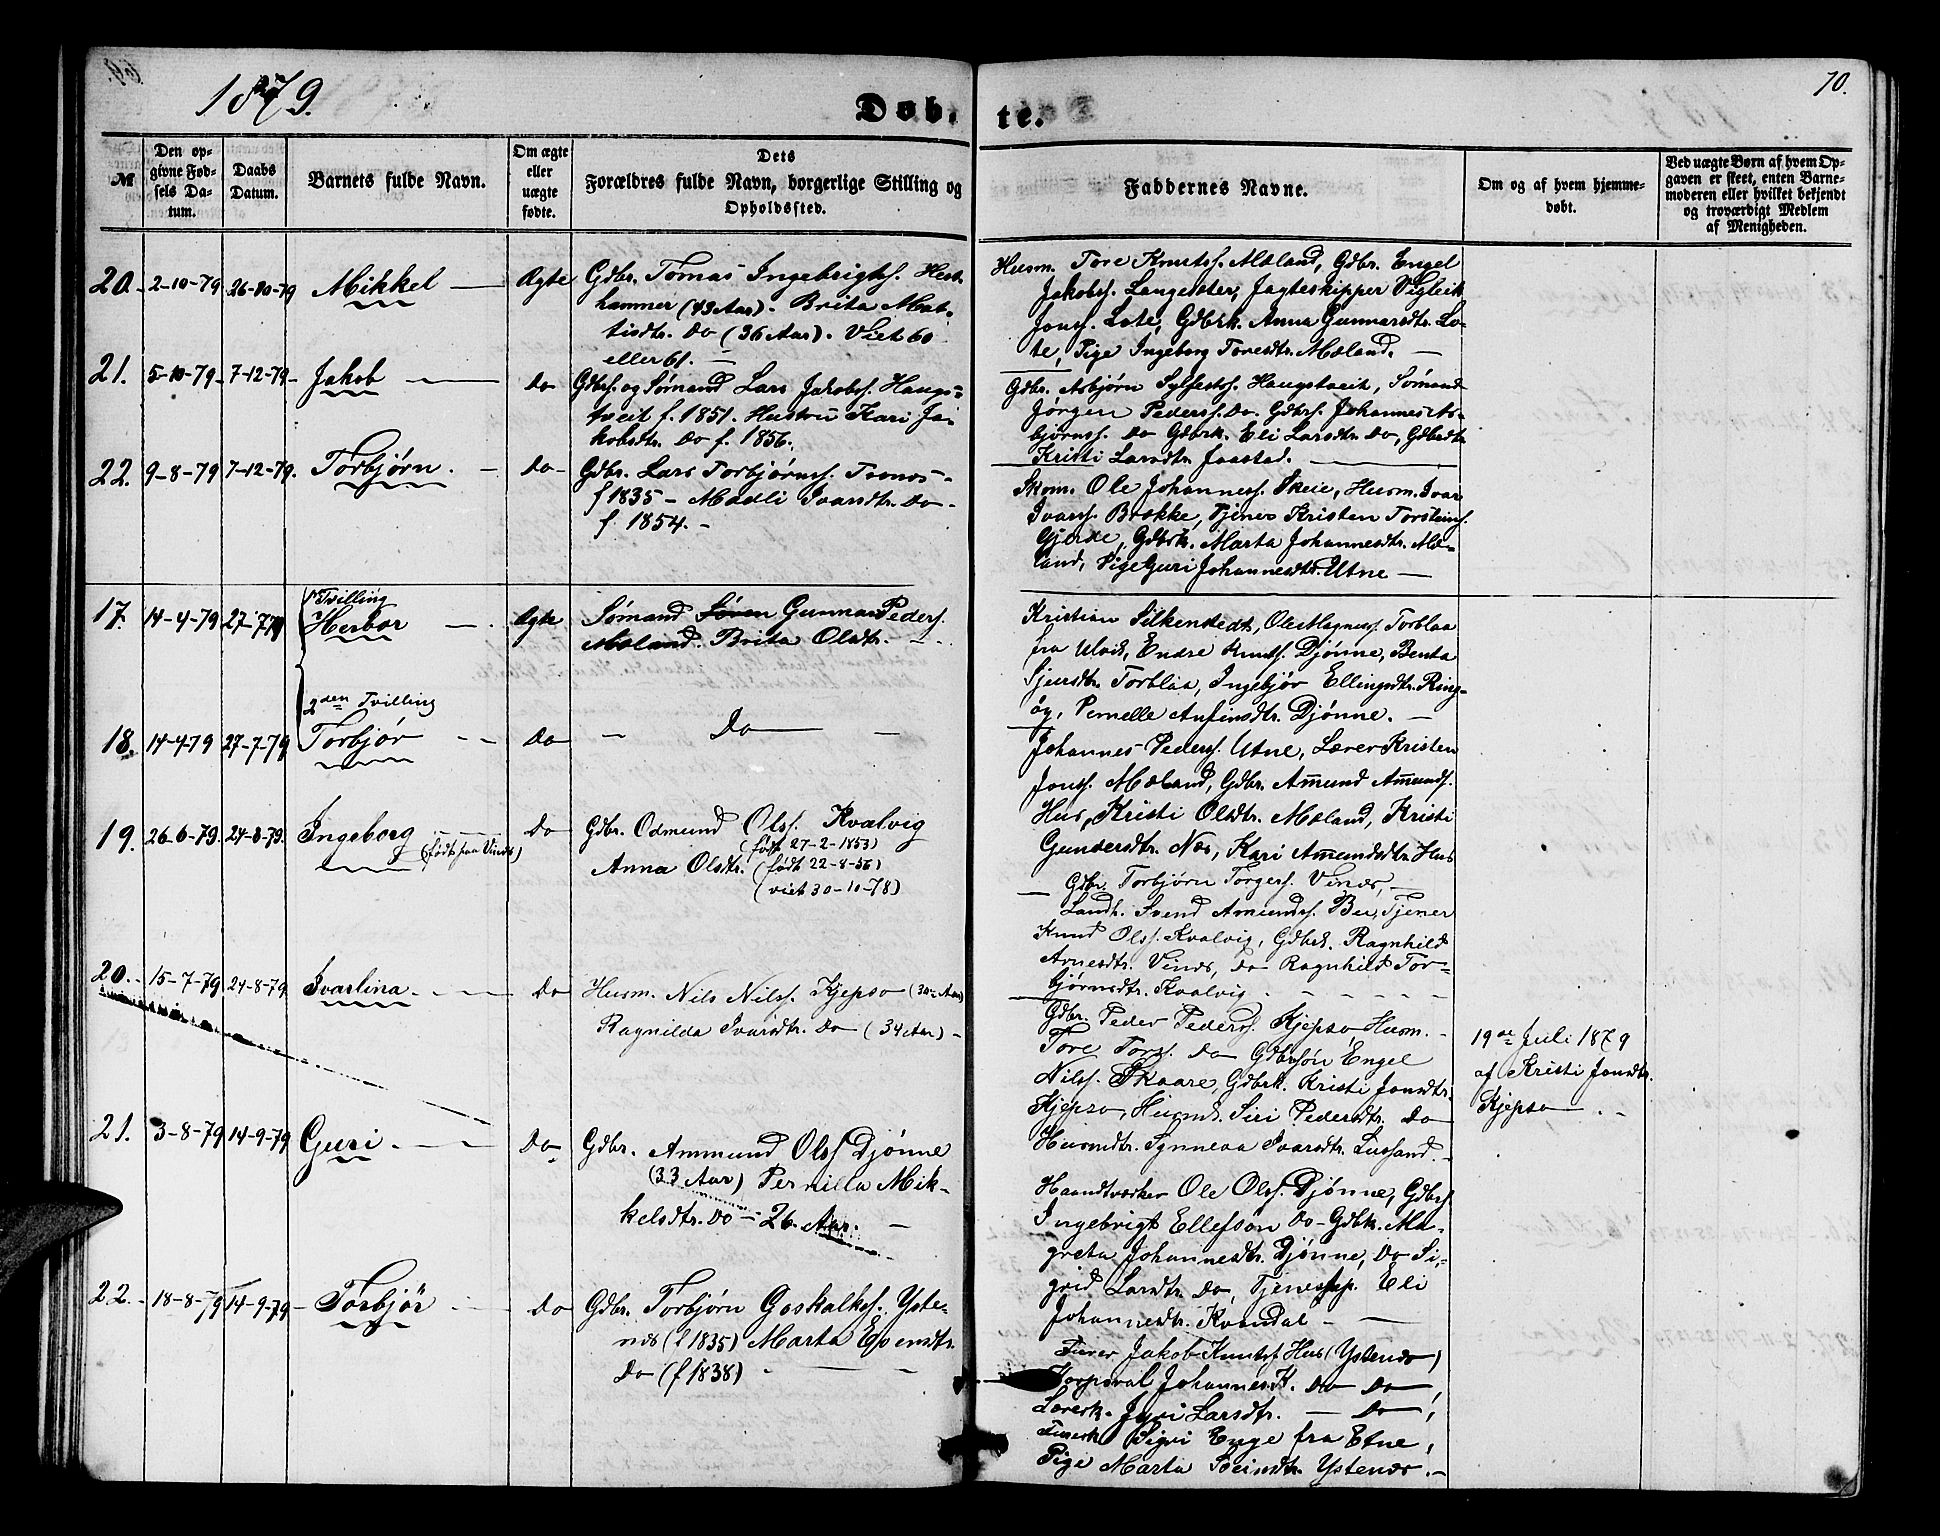 1879.
Døb-
te.
70.
№
Den op-
givne Fød-
sels Da-
tum.
Daabs
Datum.
Barnets fulde Navn.
Om ægte
eller
uægte
fødte.
Dets
Forældres fulde Navn, borgerlige Stilling og
Opholdssted.
Faddernes Navne.
Om og af hvem hjemme-
døbt.
Ved uægte Børn af hvem Op-
gaven er skeet, enten Barne-
moderen eller hvilket bekjendt
og troværdigt Medlem
af Menigheden.
20. 2-10-79 26-10-79 Mikkel Ægte
Gdbr. Tomas Ingebrigts. Hest-
hammer (43 Aar). Brita Mat-
tisdtr. Do (36 Aar). Viet 60
eller 61.
Husm. Tore Knuts. Mæland, Gdbr. Engel
Jakobs. Langesæter, Jagteskipper Vigleik
Jons. Lote, Gdbrk. Anna Gunnarsdtr. Lo-
te, Pige Ingeborg Toresdtr. Mæland.
21. 5-10-79 7-12-79 Jakob Do
Gdbrs. og Sømand Lars Jakobs. Haugs-
tveit f. 1851. Hustru Kari Ja-
kobsdtr. Do f. 1856.
Gdbr. Asbjørn Sylfests. Haugstveit, Sømand
Jørgen Peders. Do. Gdbrs. Johannes As-
bjørns. Do Gdbrk. Eli Larsdtr. Do, Gdbrdtr.
Kristi Larsdtr. Jaastad.
22. 9-8-79 7-12-79. Torbjørn. Do
Gdbr. Lars Torbjørns. Tronæs
f 1835 - Madli Ivarsdtr. Do -
f. 1854. -
Skom. Ole Johanness. Skeie, Husm. Ivar
Ivars. Brække, Tjener Kristen Torsteins.
Gjerde, Gdbrk. Marta Johannesdtr. Mæ-
land, Pige Guri Johannesdtr. Utne
17. 14-4-79 27-7-79 1ste Tvilling
Herbor Ægte
Sømand Søren Gunnar Peders.
Mæland. Brita Olsdtr.
Kristian Silkenstedt, Ole Magness. Torblaa
fra Ulvik, Endre Knuts. Djønne, Benta
Sjursdtr. Torblaa, Ingebjør Ellingsdtr. Ring-
øy, Pernelle Anfinsdtr. Djønne.
18. 14-4-79 27-7-79 2den Tvilling
Torbjør Do
Do
Johannes Peders. Utne, Lærer Kristen
Jons. Mæland, Gdbr. Amund Amunds.
Hus, Kristi Olsdtr. Mæland, Kristi
Gundersdtr. Næs, Kari Amundsdtr. Hus
19. 26-6-79. 24-8-79. Ingeborg Do
(født paa Vinæs)
Gdbr. Odmund Ols. Kvalvig
(født 27-2-1853)
Anna Olsdtr. (født 22-8-56)
(viet 30-10-78)
Gdbr. Torbjørn Torgers. Vinæs,
Landh. Svend Amunds. Bu, Tjener
Knud Ols. Kvalvig, Gdbrk. Ragnhild
Arnesdtr. Vinæs, Do Ragnhild Tor-
bjørnsdtr. Kvalvig.
20. 15-7-79 24-8-79 Ivarlina Do
Husm. Nils Nilss. Kjepso (30 Aar)
Ragnilda Ivarsdtr. Do (34 Aar) -
Gdbr. Peder Peders. Kjepso, Husm.
Tore Tors. Do Gdbrsøn Engel
Nilss. Skaare, Gdbrk. Kristi Jonsdtr.
Kjepso, Husmk. Siri Pedersdtr. Do
Husmdtr. Synneva Ivarsdtr. Lussand.
19de Juli 1879
af Kristi Jonsdtr.
Kjepso
21. 3-8-79 14-9-79 Guri. Do
Gdbr. Ammund Ols. Djønne
(33 Aar) Pernilla Mik-
kelsdtr. Do - 26 Aar.
Haandtværker Ole Ols. Djønne, Gdbrs.
Ingebrigt Ellefsøn Do - Gdbk. Ma-
greta Johannesdtr. Djønne, Do Si-
grid Larsdtr. Do, Tjenesp. Eli
Johannesdtr. Kvandal
22. 18-8-79 14-9-79 Torbjør Do
Gdbr. Torbjørn Goskalks. Yste-
næs (f 1835) Marta Evensdtr.
Do (f 1838)
Furer Jakob Knuts. Hus (Ystenæs)
Korporal Johannes K. Do Do,
Lærerk. Jyri Larsdtr. Do,
Furerk Sigri Enge fra Etne,
Pige Marta Sveinsdtr. Ystenæs.